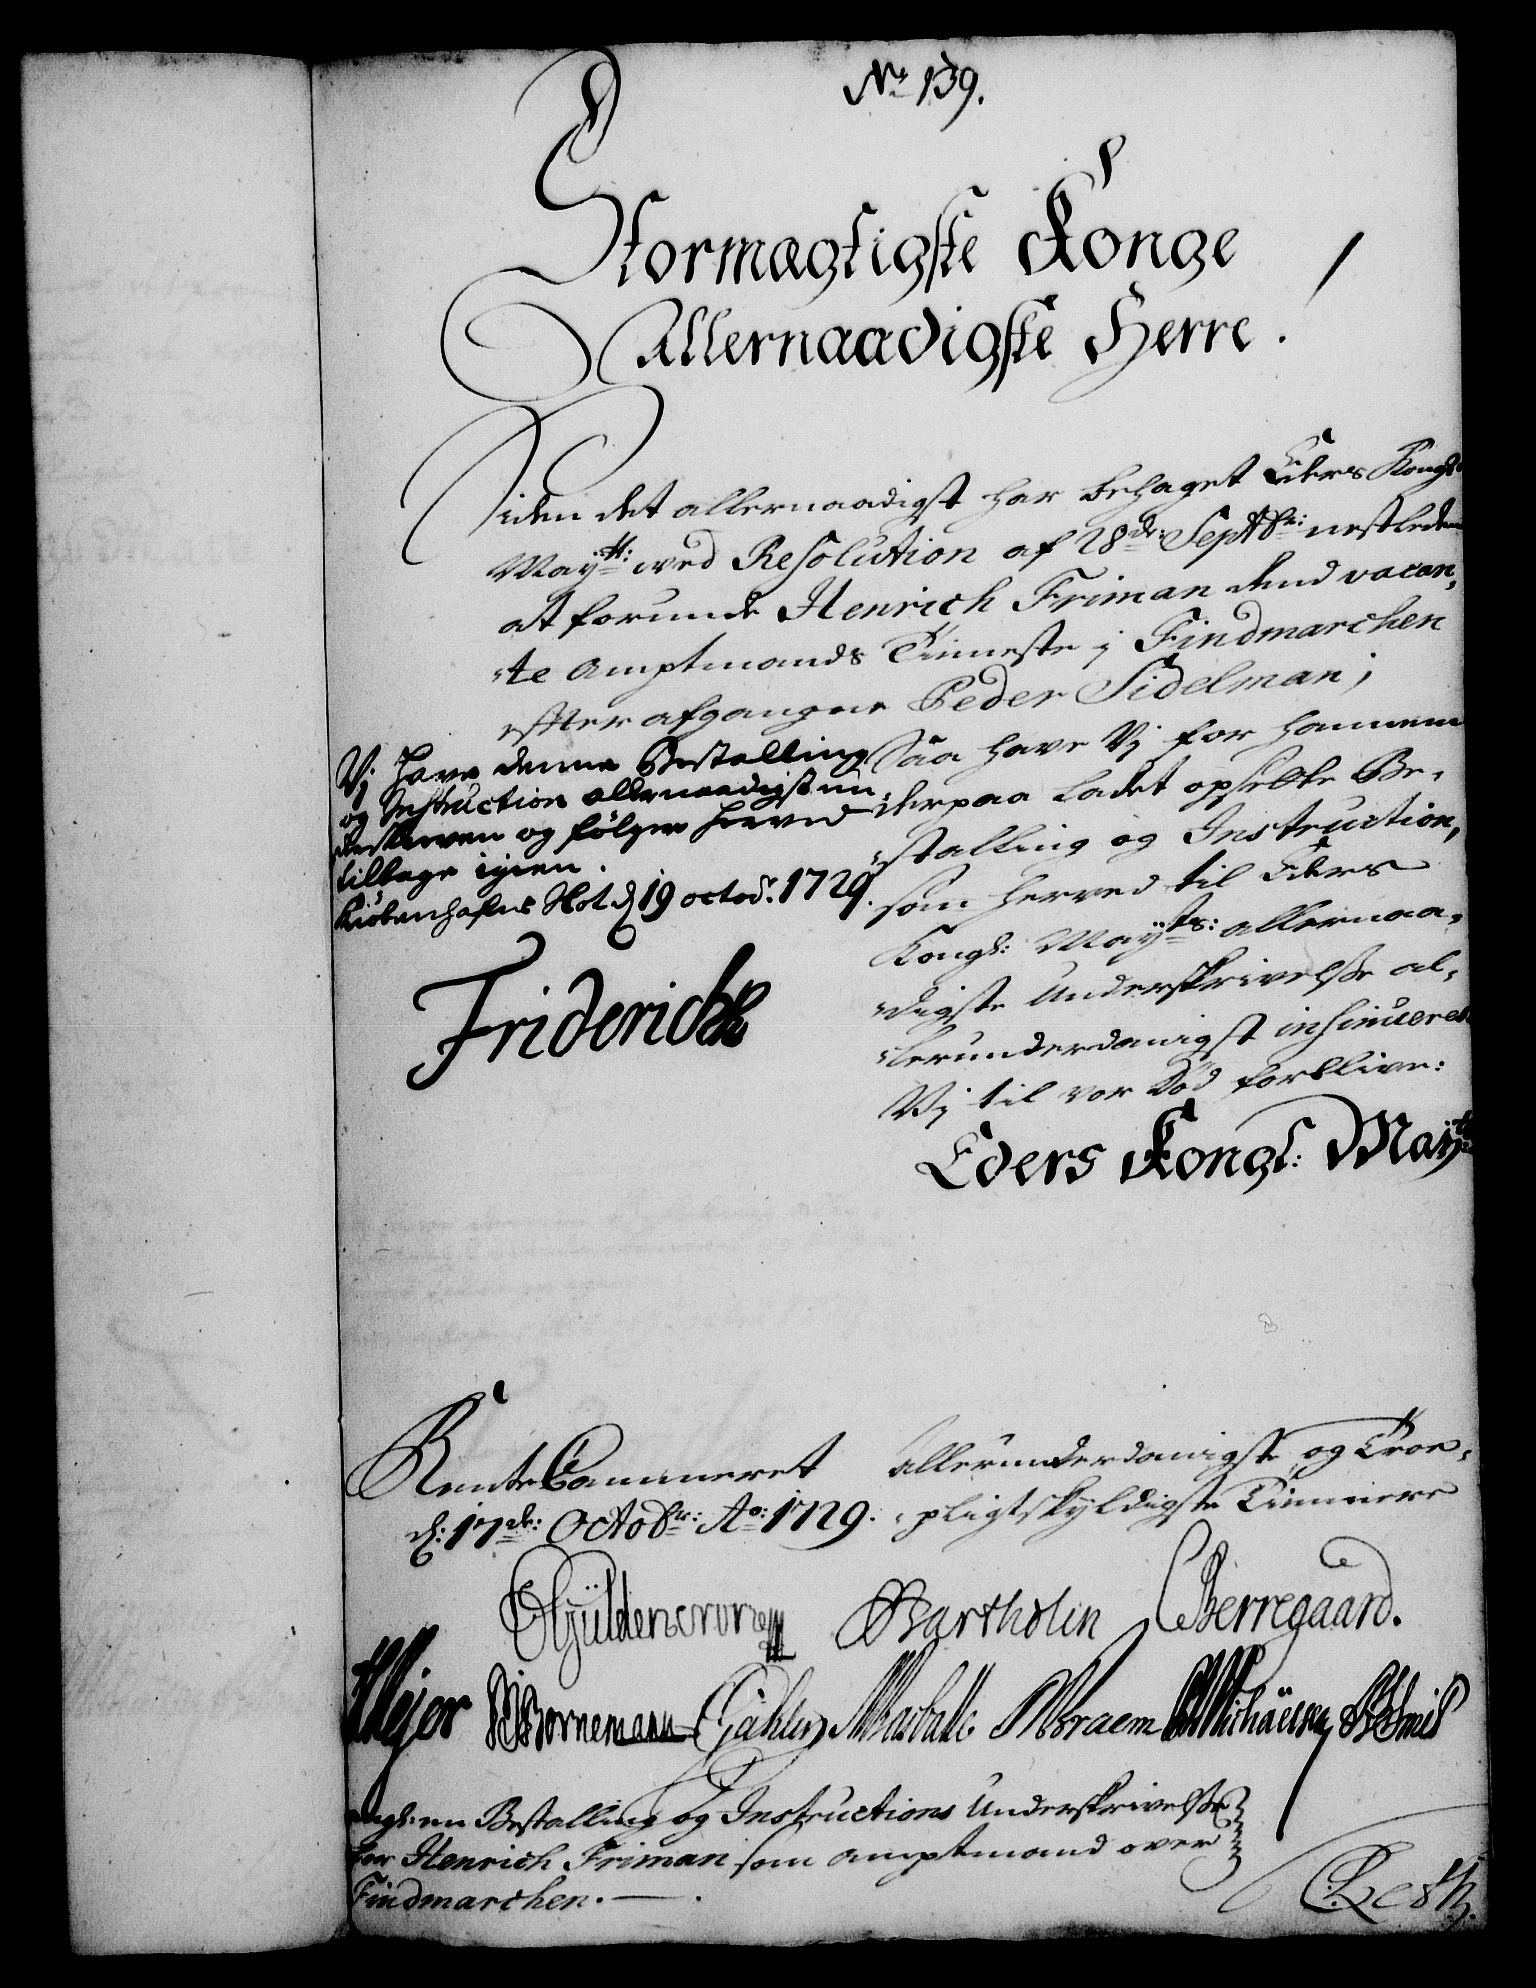 No 139.
Stormægtigste Konge
Allernaadigste Herre.
Siden det allernaadigst har behaget Eders Kongl:
Mayt: wed Resolution af 28de: Septbr: nestleden
at forunde Henrich Friman dend vacan,
,te Amptmands Tienneste i Findmarchen
effter afgangne Peder Sidelman;
Saa have Vj for hannem
derpaa ladet opsette Be,
,stalling og Instruction,
som herved til Eders
Kongl: Mayts: allernaa,
,digste Underskrivelse al,
,lerunderdanigst insinueres
Vj til vor Död forblive:
Eders Kongl: Mayts
Vj have denne Bestalling
og Instruction allernaadigst un,
derskreven og følger herved
tilbage igien.
Kiøbenhafns Slot d 19 octobr. 1729.
Friderich R
Rente Cammeret
d: 17de: Octobr: Ao: 1729.
allerunderdanigste og Troe,
,pligtskyldigste Tiennere
Güldencrone
Bartholin
Berregaard.
Mejer Bornemann Gähler Braem
angl: en Bestalling og Instructions Underskrivelse
for Henrich Friman som Amptmand over
Findmarchen.